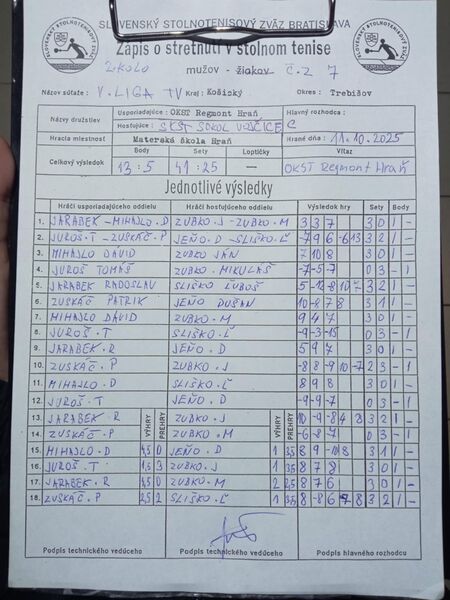 SLOVENSKÝ STOLNOTENISOVÝ ZVÄZ BRATISLAVA
Zápis o stretnutí v stolnom tenise
2 kolo mužov - žiakov č. z 7
Názov súťaže : V. LIGA TV Kraj : Košický Okres : Trebišov
Názov družstiev Usporiadajúce : OKST Regmont Hraň Hlavný rozhodca :
Hosťujúce : SKST SOKOL VOJČICE C
Hracia miestnosť Materská škola Hraň Hrané dňa : 11.10.2025
Body Sety Loptičky Víťaz
Celkový výsledok 13:5 41:25 — OKST Regmont Hraň
Jednotlivé výsledky
Hráči usporiadajúceho oddielu Hráči hosťujúceho oddielu Výsledok hry Sety Body
1. JARABEK - MIHAJLO.D ZUBKO.J - ZUBKO.M 3 3 7 3 0 1 -
2. JUROŠ.T - ZUSKÁČ.P JEŇO.D - SLIŠKO.Ľ -7 9 6 -6 13 3 2 1 -
3. MIHAJLO DÁVID ZUBKO JÁN 7 10 8 3 0 1 -
4. JUROŠ TOMÁŠ ZUBKO MIKULÁŠ -7 -5 -7 0 3 - 1
5. JARABEK RADOSLAV SLIŠKO ĽUBOŠ 5 -12 8 10 7 3 2 1 -
6. ZUSKÁČ PATRIK JEŇO DUŠAN 10 -8 7 8 3 1 1 -
7. MIHAJLO DÁVID ZUBKO.M 9 4 7 3 0 1 -
8. JUROŠ.T SLIŠKO.Ľ -9 -3 -15 0 3 - 1
9. JARABEK.R JEŇO.D 5 9 7 3 0 1 -
10. ZUSKÁČ.P ZUBKO.J -8 8 -9 10 -7 2 3 - 1
11. MIHAJLO.D SLIŠKO.Ľ 8 9 8 3 0 1 -
12. JUROŠ.T JEŇO.D -9 -9 -7 0 3 - 1
13. JARABEK.R VÝHRY PREHRY ZUBKO.J VÝHRY PREHRY 10 -9 -8 4 8 3 2 1 -
14. ZUSKÁČ.P ZUBKO.M -6 -8 -7 0 3 - 1
15. MIHAJLO.D 4,5 0 JEŇO.D 1 3,5 8 9 -10 8 3 1 1 -
16. JUROŠ.T 1,5 3 ZUBKO.J 1 3,5 8 7 8 3 0 1 -
17. JARABEK.R 4,5 0 ZUBKO.M 2 2,5 8 7 6 3 0 1 -
18. ZUSKÁČ.P 2,5 2 SLIŠKO.Ľ 1 3,5 8 -8 6 -7 8 3 2 1 -
Podpis technického vedúceho Podpis technického vedúceho Podpis hlavného rozhodcu